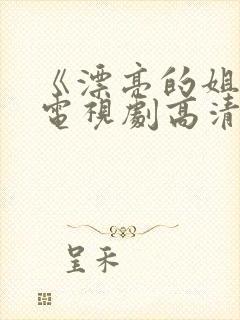 《漂亮的姐
電視劇高清
呈禾